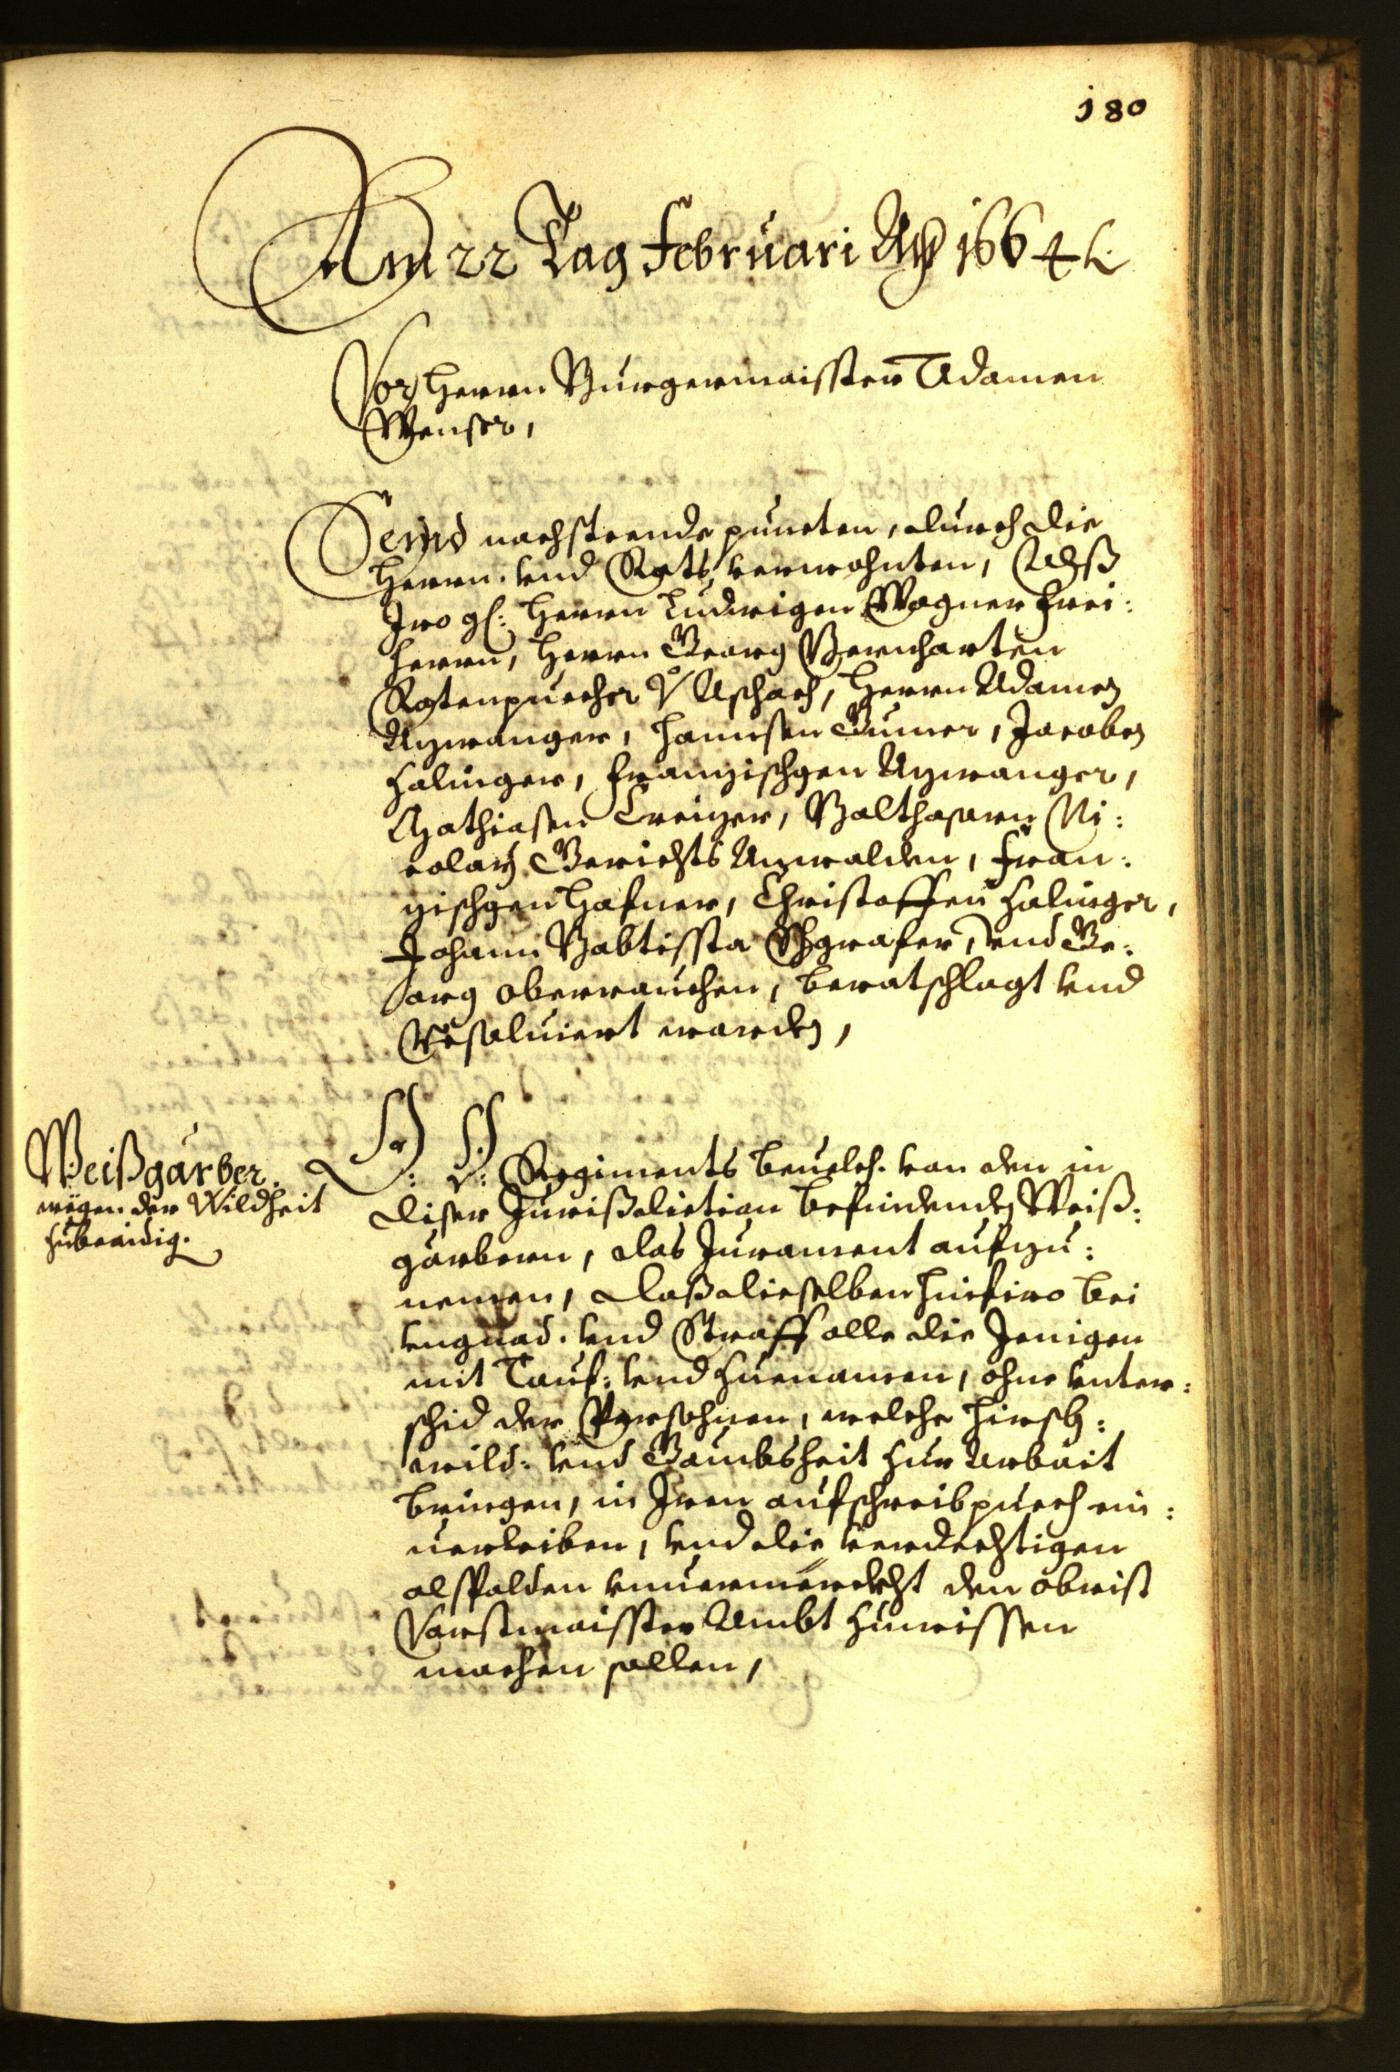 180
Am 22 Tag Februari Ao 1664
Vor Herrn Burgermaisster Adamen
Wenser,
Seind nachsteende puncten, durch die
Herrn. vnd Rats verwohnten, Alß
Iro gl: Herrn Ludwigen Wagner frei:
herrn, Herrn Georg Bernharten
Rotenpuecher v Aschach, Herrn Adamen
Azwanger, Hannsen Gumer, Jacoben
Halinger, Franzischgen Azwanger,
Mathiasen Creizer, Balthasarn Ni:
colaus Gerichts Anwalden, Fran:
zischgen Hafner, Christoffen Halinger,
Johann Babtissta Schgrafer, vnd Ge:
org Oberrauchen, beratschlagt vnd
Resoluiert worden,
Weißgärber.
wegen der Wildheit
zubeaidig.
Regiments beuelch. von den in
diser Jurißdiction befindenden Weiß:
gärbern, das Jurament aufzu:
nemen, daß dieselben hinfiro bei
vngnad. vnd Straff alle die Jenigen
mit Tauf: vnd Zuenamen, ohne vnter:
schid der Persohnen, welche Hirsch:
wild: vnd Gämbsheit zur Arbait
bringen, in Iren aufschreibpuech ein:
uerleiben, vnd die verdechtigen
alspalden vnuermerckht den obrist
Vorstmaisster Ambt zuwissen
machen sollen,